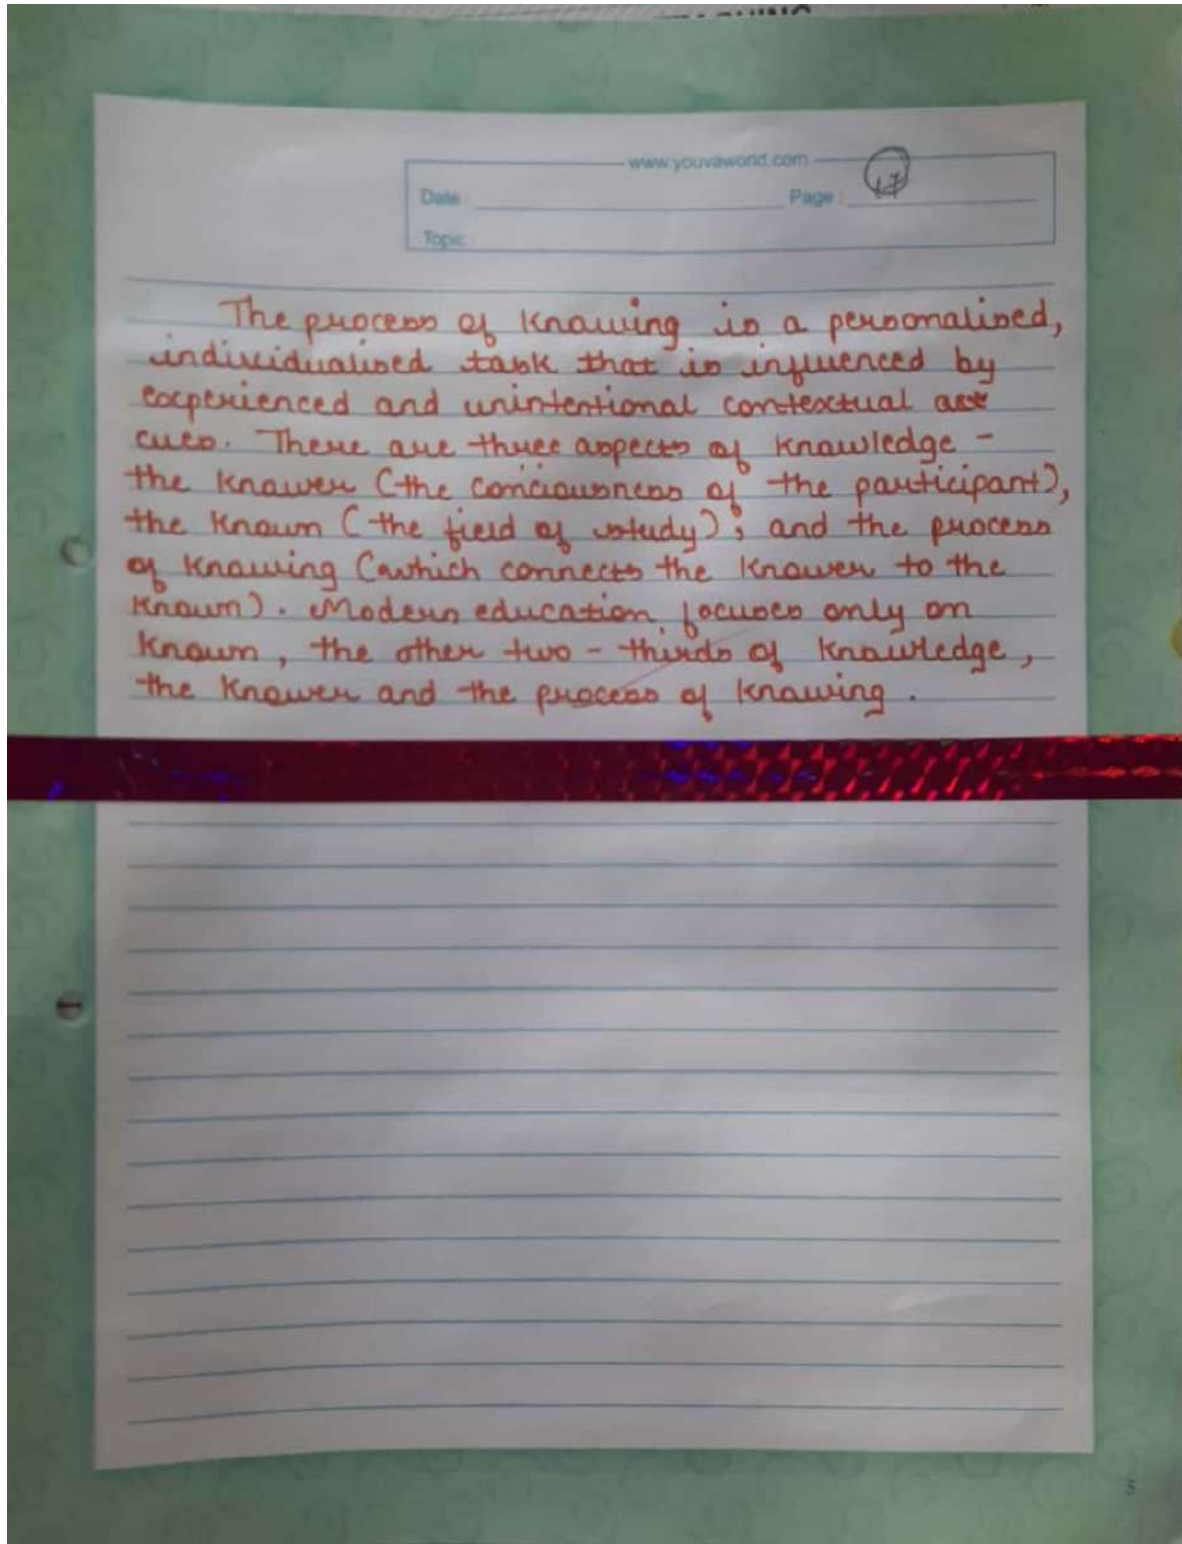 www.youvaworld.com
Date :
Page : 17
Topic
The process of knowing is a personalised,
individualised task that is influenced by
experienced and unintentional contextual
cues. There are three aspects of knowledge -
the knower (the conciousness of the participant),
the known (the field of study); and the process
of knowing (which connects the knower to the
known). Modern education focuses only on
known, the other two - thirds of knowledge,
the knower and the process of knowing .
5